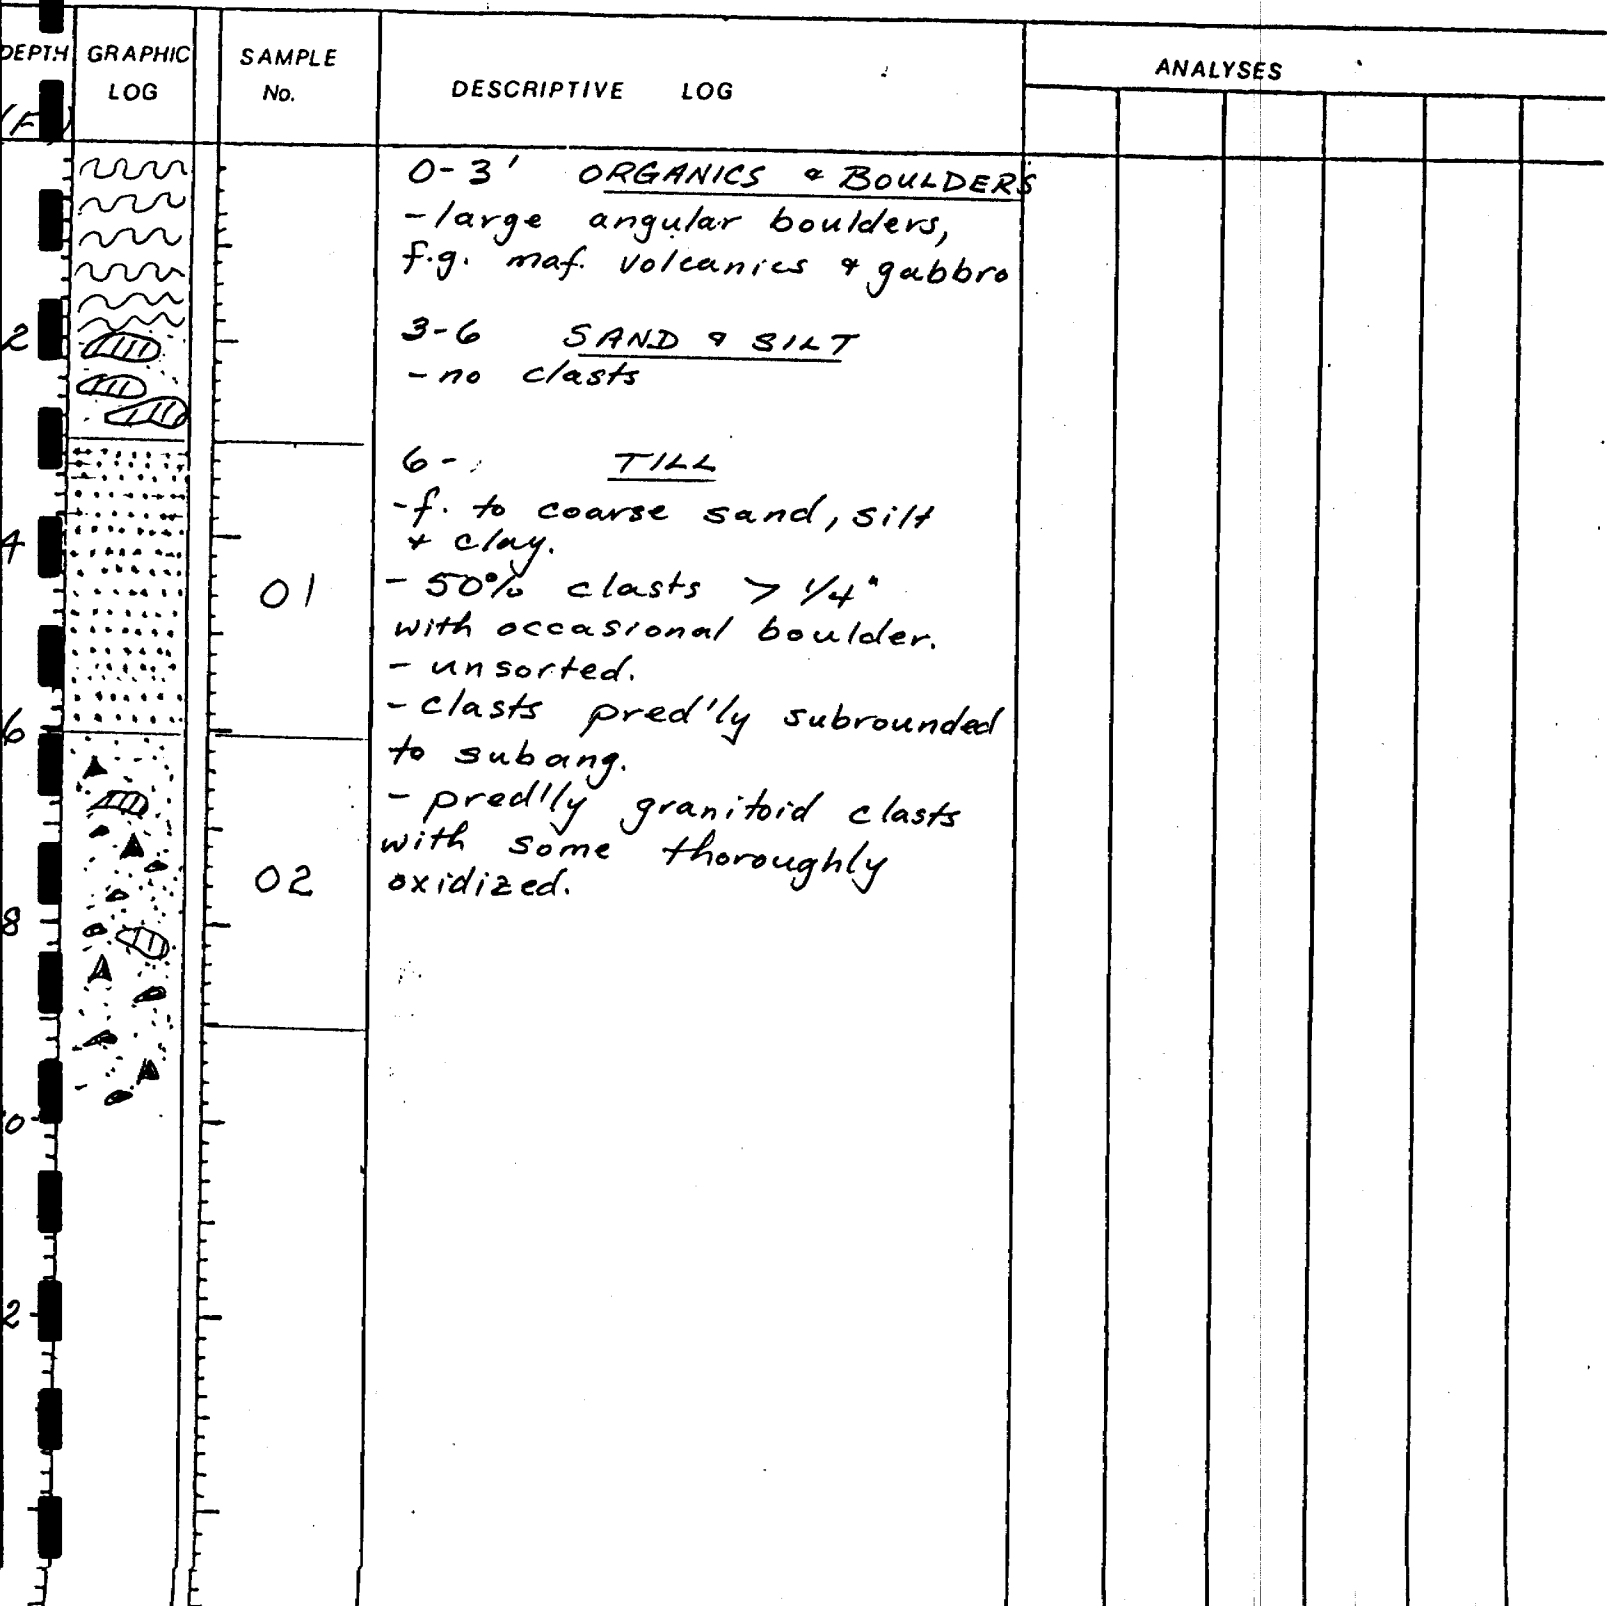 DEPTH GRAPHIC LOG SAMPLE No. DESCRIPTIVE LOG ANALYSES
0-3' ORGANICS & BOULDERS
- large angular boulders,
f.g. maf. volcanics & gabbro
2
3-6 SAND & SILT
- no clasts
6- TILL
- f. to coarse sand, silt
+ clay.
4
01
- 50% clasts > 1/4"
with occasional boulder.
- unsorted.
- clasts pred'ly subrounded
6
to subang.
- pred'ly granitoid clasts
with some thoroughly
02
oxidized.
8
0
2